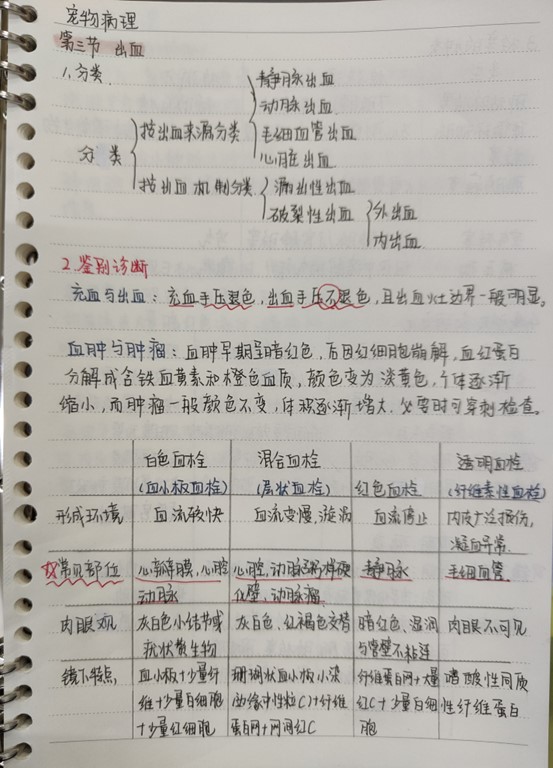 宠物病理
第三节 出血
1.分类
静脉出血
动脉出血
按出血来源分类
毛细血管出血
分类
心脏出血
按出血机制分类
漏出性出血
破裂性出血
外出血
内出血
2.鉴别诊断
充血与出血：充血手压褪色，出血手压不褪色，且出血灶边界一般明显。
血肿与肿瘤：血肿早期呈暗红色，后因红细胞崩解，血红蛋白
分解成含铁血黄素和橙色血质，颜色变为淡黄色，个体逐渐
缩小，而肿瘤一般颜色不变，体积逐渐增大。必要时可穿刺检查。
白色血栓 混合血栓 透明血栓
(血小板血栓) (层状血栓) 红色血栓 (纤维素性血栓)
形成环境 血流较快 血流变慢，漩涡 血流停止 内皮广泛损伤，
凝血异常
常见部位 心瓣膜，心腔 心腔，动脉粥样硬 静脉 毛细血管
动脉 化壁，动脉瘤
肉眼观 灰白色小结节或 灰白色，红褐色交替 暗红色、湿润 肉眼不可见
疣状赘生物 与管壁不粘连
镜下特点 血小板+少量纤 珊瑚状血小板小梁 纤维蛋白网+大量 嗜酸性同质
维+少量白细胞 (边缘中性粒C)+纤维 红C+少量白细 性纤维蛋白
+少量红细胞 蛋白网+网间红C 胞